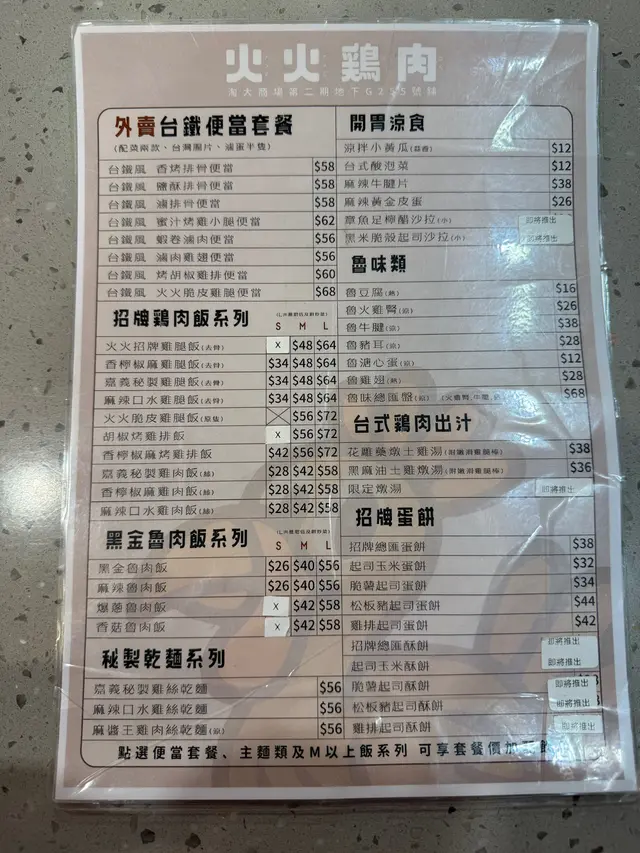 火火鷄肉
淘大商場第二期地下G255號舖
外賣台鐵便當套餐
(配菜兩款、台灣腸片、滷蛋半隻)
台鐵風 香烤排骨便當 $58
台鐵風 鹽酥排骨便當 $58
台鐵風 滷排骨便當 $58
台鐵風 蜜汁烤雞小腿便當 $62
台鐵風 蝦卷滷肉便當 $56
台鐵風 滷肉雞翅便當 $56
台鐵風 烤胡椒雞排便當 $60
台鐵風 火火脆皮雞腿便當 $68
招牌鷄肉飯系列
S M L
火火招牌雞腿飯(去骨) x $48 $64
香檸椒麻雞腿飯(去骨) $34 $48 $64
嘉義秘製雞腿飯(去骨) $34 $48 $64
麻辣口水雞腿飯(去骨) $34 $48 $64
火火脆皮雞腿飯(原隻) $56 $72
胡椒烤雞排飯 x $56 $72
香檸椒麻烤雞排飯 $42 $56 $72
嘉義秘製雞肉飯(絲) $28 $42 $58
香檸椒麻雞肉飯(絲) $28 $42 $58
麻辣口水雞肉飯(絲) $28 $42 $58
黑金魯肉飯系列
S M L
黑金魯肉飯 $26 $40 $56
麻辣魯肉飯 $26 $40 $56
爆蔥魯肉飯 x $42 $58
香菇魯肉飯 x $42 $58
秘製乾麵系列
嘉義秘製雞絲乾麵 $56
麻辣口水雞絲乾麵 $56
麻醬王雞肉絲乾麵(涼) $56
開胃涼食
涼拌小黃瓜(蒜香) $12
台式酸泡菜 $12
麻辣牛腱片 $38
麻辣黃金皮蛋 $26
章魚足檸醋沙拉(小) 即將推出
黑米脆殼起司沙拉(小) 即將推出
魯味類
魯豆腐(熱) $16
魯火雞腎(涼) $26
魯牛腱(涼) $38
魯豬耳(涼) $28
魯溏心蛋(涼) $12
魯雞翅(熱) $28
魯味總匯盤(涼) $68
台式鷄肉出汁
花雕藥燉土雞湯(附嫩滑雞腿棒) $38
黑麻油土雞燉湯(附嫩滑雞腿棒) $36
限定燉湯 即將推出
招牌蛋餅
招牌總匯蛋餅 $38
起司玉米蛋餅 $32
脆薯起司蛋餅 $34
松板豬起司蛋餅 $44
雞排起司蛋餅 $42
招牌總匯酥餅 即將推出
起司玉米酥餅 即將推出
脆薯起司酥餅 即將推出
松板豬起司酥餅 即將推出
雞排起司酥餅 即將推出
點選便當套餐、主麵類及M以上飯系列 可享套餐價加